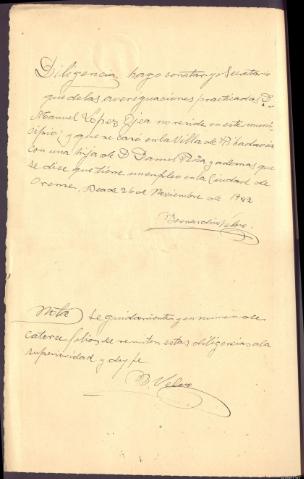 Diligencia hago constar yo Secretario
que de las averiguaciones practicadas D.
Manuel López no reside en este muni-
cipio; y que se casó en la Villa de Ribadavia
con una hija de D. Daniel Peña y ademas que
se dice que tiene un empleo en la Ciudad de
Orense. a 26 de Noviembre de 1942
Nota Seguidamente y en numero de
catorce folios se remiten estas diligencias a la
superioridad y doy fe
B Velas